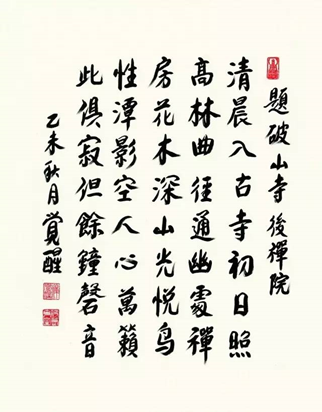 題破山寺後禪院
清晨入古寺初日照
高林曲徑通幽處禪
房花木深山光悦鸟
性潭影空人心萬籟
此俱寂但餘鐘磬音
乙未秋月覺醒